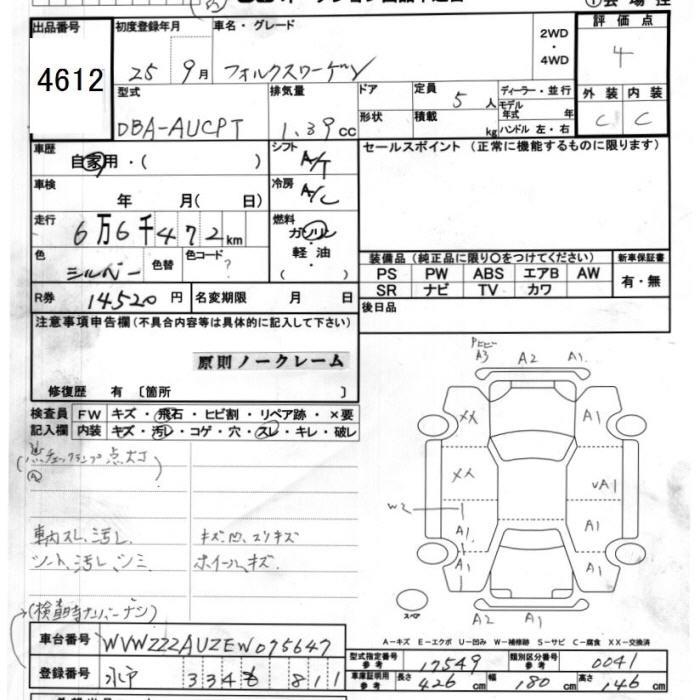 出品番号
4612
初度登録年月
25 9月
車名・グレード
フォルクスワーゲン
2WD
・
4WD
評価点
4
外装 内装
C C
型式
DBA-AUCPT
排気量
1.39cc
ドア
形状
定員
5人
積載
kg
ディーラー・並行
モデル
年式 年
ハンドル 左・右
車歴
自家用・( )
シフト
A/T
セールスポイント(正常に機能するものに限ります)
車検
年 月( 日)
冷房
A/C
走行
6万6千472km
燃料
ガソリン
・
軽油
・
( )
色
シルバー
色替
色コード
?
装備品(純正品に限り〇をつけてください)
新車保証書
PS PW ABS エアB AW
SR ナビ TV カワ
有・無
R券 14520円
名変期限 月 日
後日品
注意事項申告欄(不具合内容等は具体的に記入して下さい)
原則ノークレーム
修復歴 有〔箇所 〕
検査員
記入欄
FW キズ・飛石・ヒビ割・リペア跡・×要
内装 キズ・汚レ・コゲ・穴・スレ・キレ・破レ
チェックランプ点灯
車内スレ、汚レ
シート、汚レ、シミ
キズ、凹、スリキズ
ホイール、キズ
(検査時ナンバーナシ)
車台番号 WVWZZZAUZEW075647
登録番号 水戸 334 も 811
A3 A2 A1
XX A1
XX VA1
W2
A1 A1
A1 A1
スペア
A2 A1
A-キズ E-エクボ U-凹み W-補修跡 S-サビ C-腐食 XX-交換済
型式指定番号
参考
17549
類別区分番号
参考
0041
車庫証明用
参考
長さ 426cm 幅 180cm 高さ 146cm